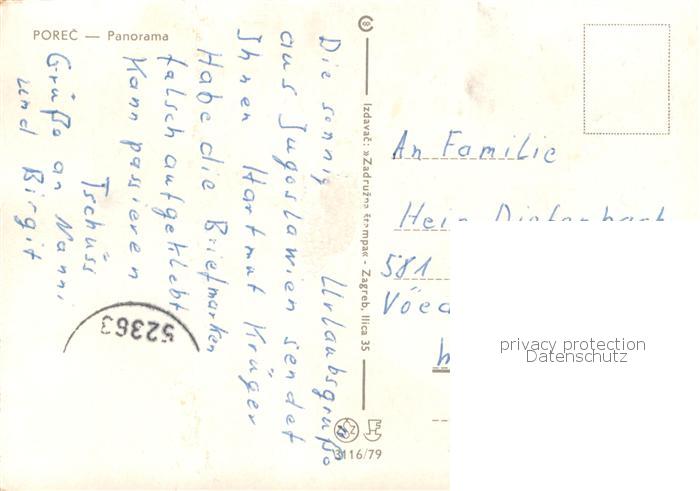 POREČ — Panorama
Die sonnig Urlaubsgrüße
aus Jugoslawien sendet
Ihnen Hartmut Krüger
Habe die Briefmarken
falsch aufgeklebt
Kann passieren
Tschüss
Grüße an Nanni
und Birgit
52363
Izdavač: »Zadružna štampa« - Zagreb, Ilica 35
3116/79
An Familie
Hein Diefenbach
581
privacy protection
Datenschutz